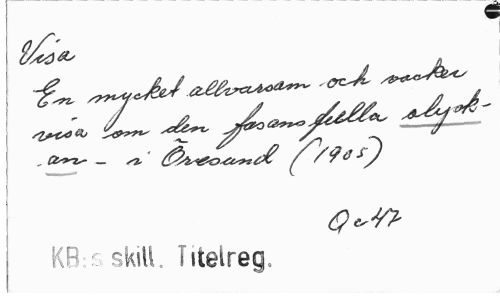 Visa
En mycket allvarsam och vacker
visa om den fasansfulla olyck-
an - i Öresund (1905)
Qc47
KB:s skill. Titelreg.